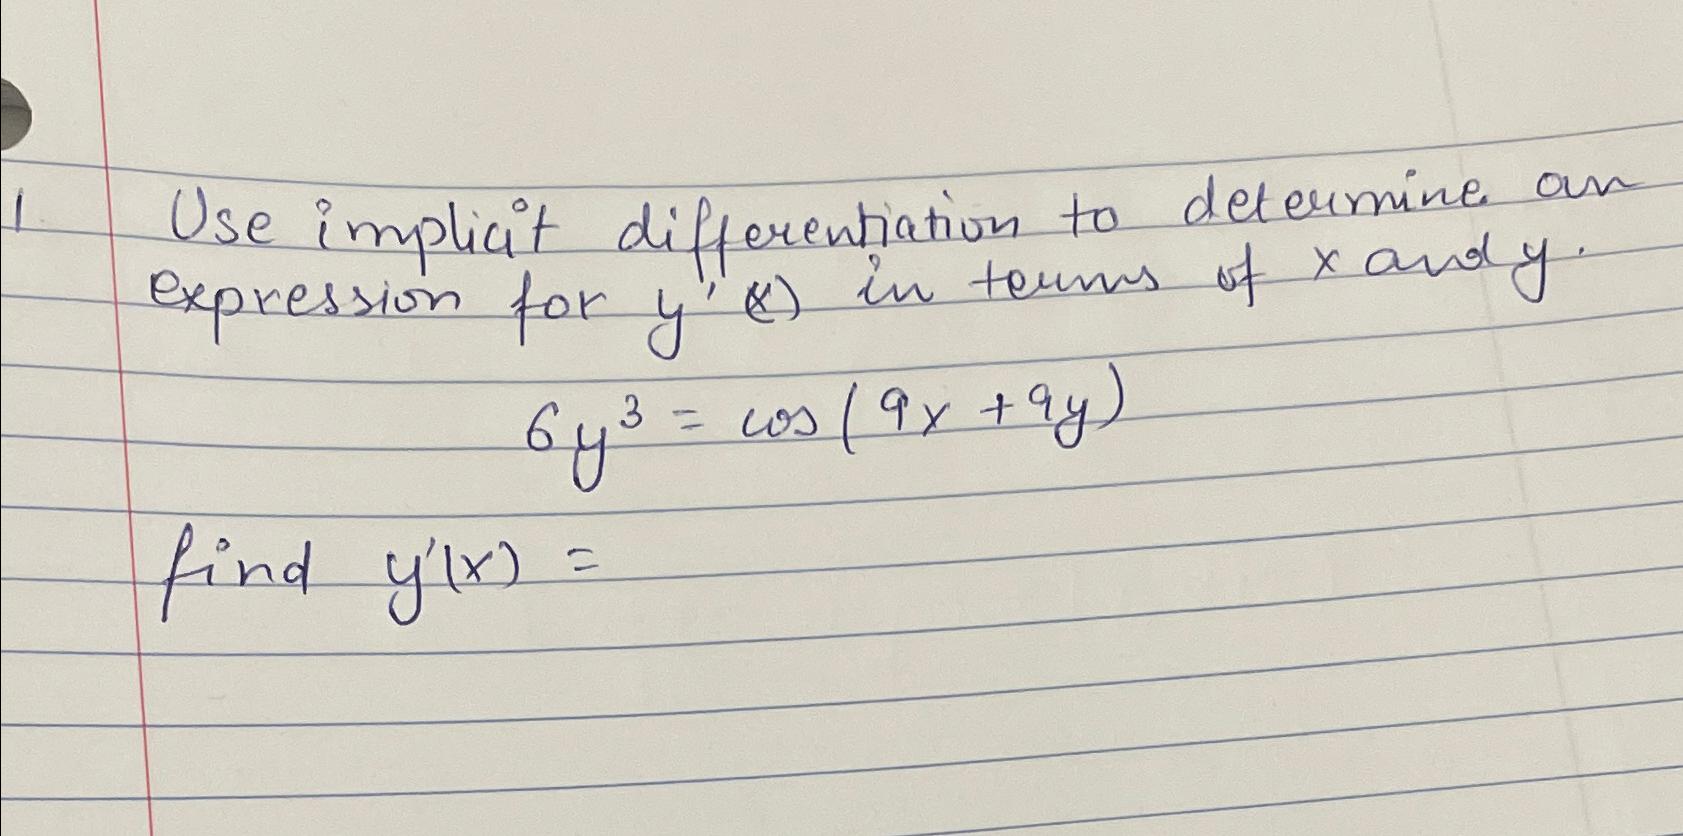 1 Use implicit differentiation to determine an
expression for y'(x) in terms of x and y.
6y³ = cos(9x + 9y)
find y'(x) =